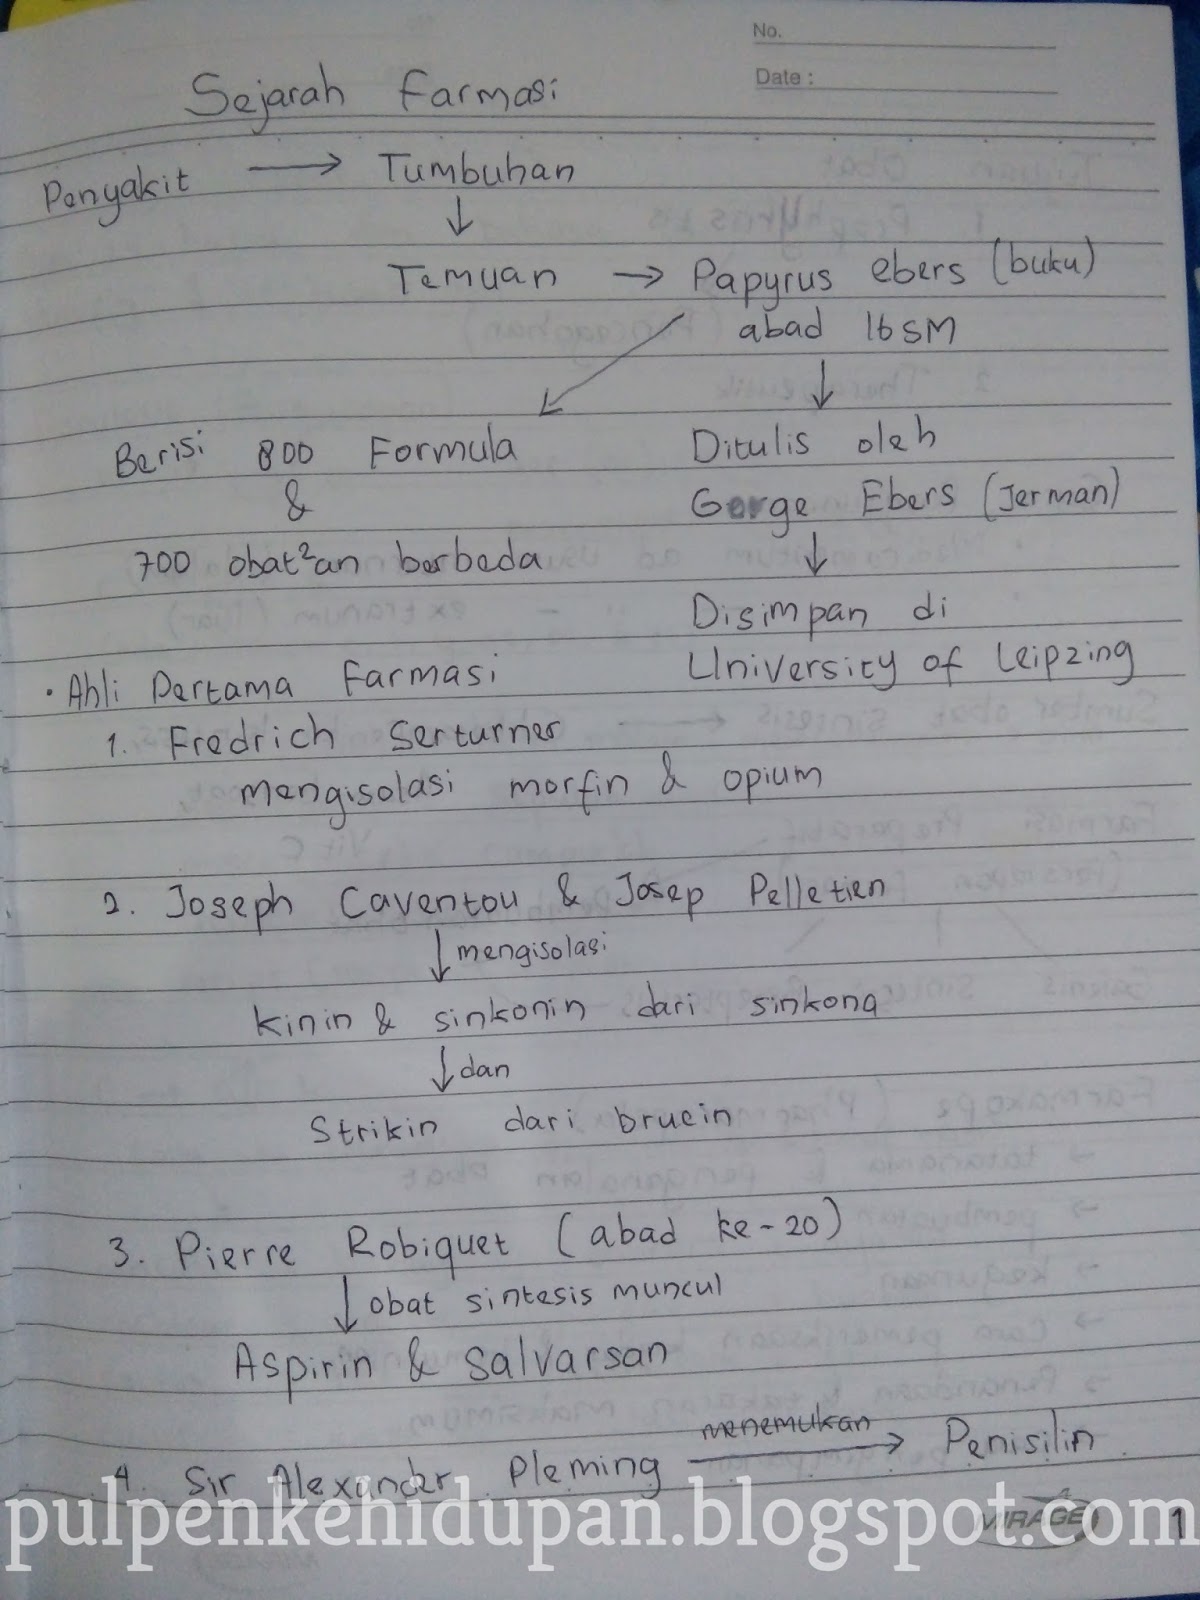 No.
Date :
Sejarah Farmasi
Penyakit → Tumbuhan
↓
Temuan → Papyrus ebers (buku)
abad 16 SM
Berisi 800 Formula
&
700 obat²an berbeda
Ditulis oleh
Gorge Ebers (Jerman)
↓
Disimpan di
University of Leipzing
• Ahli Pertama Farmasi
1. Fredrich Serturner
mengisolasi morfin & opium
2. Joseph Caventou & Josep Pelletien
↓ mengisolasi
Kinin & sinkonin dari sinkona
↓ dan
Strikin dari brucin
3. Pierre Robiquet (abad ke-20)
↓ obat sintesis muncul
Aspirin & Salvarsan
4. Sir Alexander Pleming menemukan → Penisilin
MIRAGE
1
pulpenkehidupan.blogspot.com